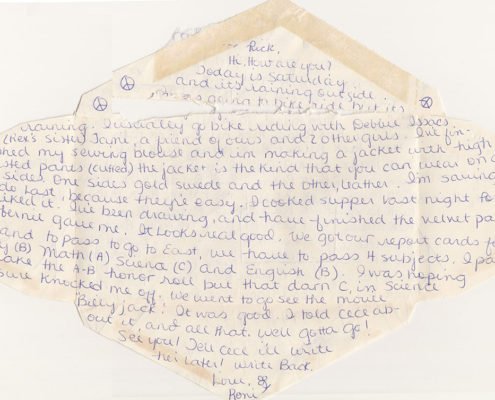 Rick,
Hi, How are you?
Today is Saturday,
and it's raining outside.
I was going to bike ride but it's
raining. I usually go bike riding with Debbie Issacs
(Rex's sister) Jami, a friend of ours and 2 other girls. I've fin-
shed my sewing blouse and im making a jacket with high
sted pants (cuffed) the jacket is the kind that you can wear on
sides. One sides gold swede and the other, leather. I'm saving
do last, because they're easy. I cooked supper last night for
liked it. I've been drawing, and have finished the velvet pa
Bernie gave me. It looks real good. We got our report cards
and to pass to go to East, we have to pass 4 subjects. I pa
(B) Math (A) Science (C) and English (B). I was hoping
ake the A-B honor roll but that darn C, in Science
sure knocked me off. we went to go see the movie
Billy jack! It was good. I told cece ab-
out it, and all that. well gotta go!
See you! Tell cece i'll write
her later! write Back.
Love,
Roni